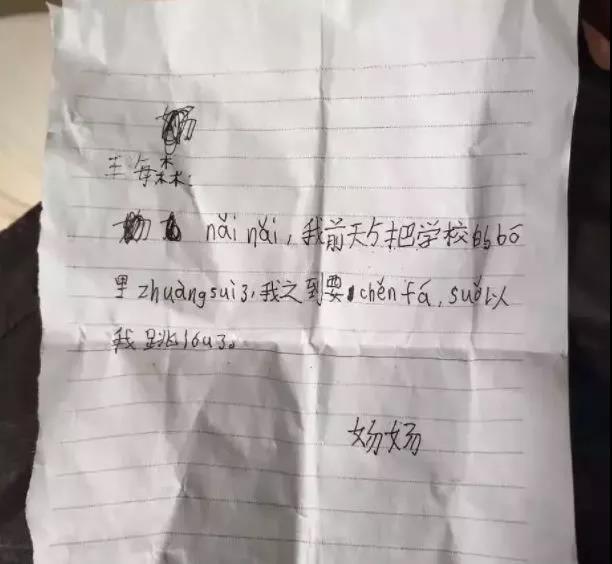 王每森:
nǎi nǎi,我前天与把学校的bō
里zhuàngsuì3,我之到要chěnfá,suǒ以
我跳lóu3。
妫妫